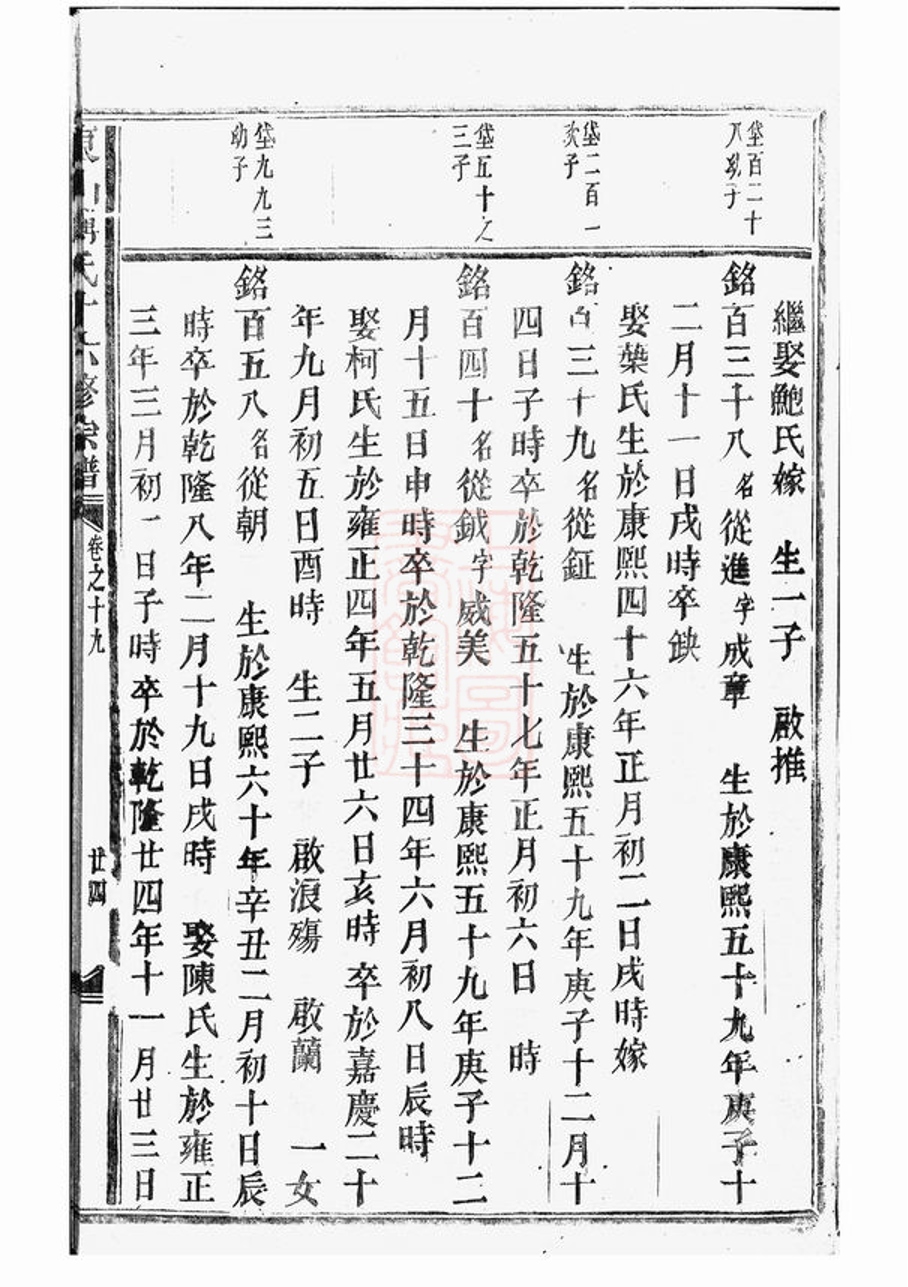 繼娶鮑氏嫁 生一子 啟推
垡百二十
八幼子
銘百三十八名從進字成章 生於康熙五十九年庚子十
二月十一日戌時卒缺
娶葉氏生於康熙四十六年正月初二日戌時嫁
垡二百一
次子
銘百三十九名從鉦 生於康熙五十九年庚子十二月十
四日子時卒於乾隆五十七年正月初六日 時
垡五十之
三子
銘百四十名從鉞字威美 生於康熙五十九年庚子十二
月十五日申時卒於乾隆三十四年六月初八日辰時
娶柯氏生於雍正四年五月廿六日亥時卒於嘉慶二十
年九月初五日酉時 生二子 啟浪殤 啟蘭 一女
垡九九三
幼子
銘百五八名從朝 生於康熙六十年辛丑二月初十日辰
時卒於乾隆八年二月十九日戌時 娶陳氏生於雍正
三年三月初一日子時卒於乾隆廿四年十一月廿三日
氏十六修宗譜 卷之十九 廿四